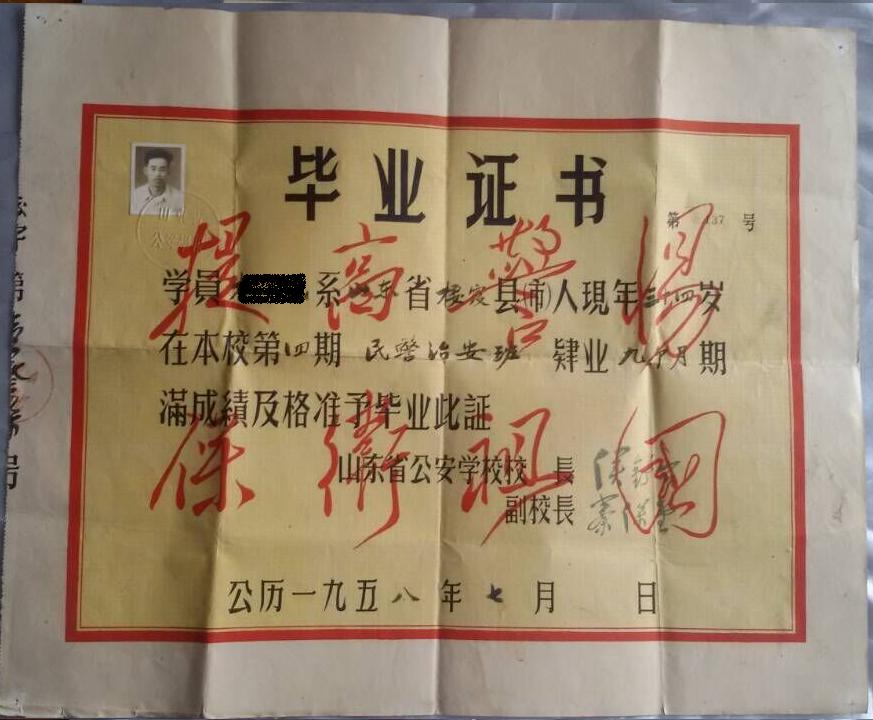 毕业证书
第 137 号
提高警惕
学員 系山东省棲霞县(市)人現年三十四岁
在本校第四期 民警治安班 肄业九个月期
滿成績及格准予毕业此証
保衛祖國
山东省公安学校校 長 侯
副校長 秦
公历一九五八年七月 日
字第 号